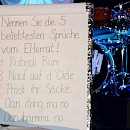 Nennen Sie die 5
beliebtesten Sprüche
vom Elferrat!
1 Rubedi Bum
2 Nauf auf d' Oide
3 Prost ihr Säcke
Oan dring ma no
Oan hamma no